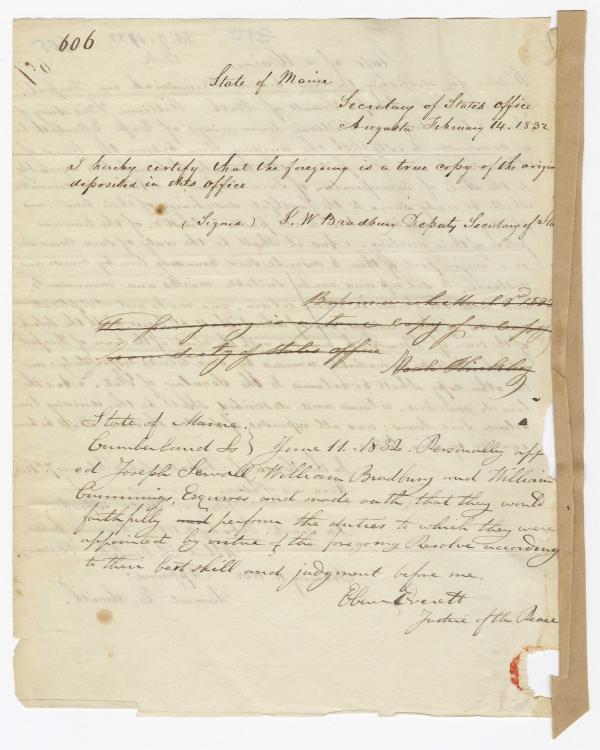 606
State of Maine
Secretary of States office
Augusta February 14. 1832
I hereby certify that the foregoing is a true copy of the origin
deposited in this office
(Signed) J. W. Bradbury Deputy Secretary of Sta
March 3rd 1832
The foregoing is a true copy of a copy
from Secty of States office Noah Hinkley
State of Maine.
Cumberland Ss } June 11. 1832. Personally app
ed Joseph Sewall William Bradbury and William
Cummings, Esquires, and made oath that they would
faithfully and perform the duties to which they were
appointed by virtue of the foregoing Resolve according
to their best skill and judgment before me,
Eben Everett
Justice of the Peace